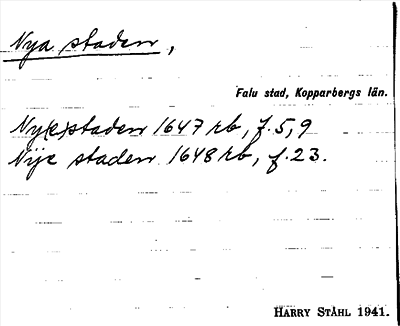 Nya staden,
Falu stad, Kopparbergs län.
Ny(e)staden 1647 rb, f. 5, 9
Nije staden 1648 rb, f. 23.
HARRY STÅHL 1941.